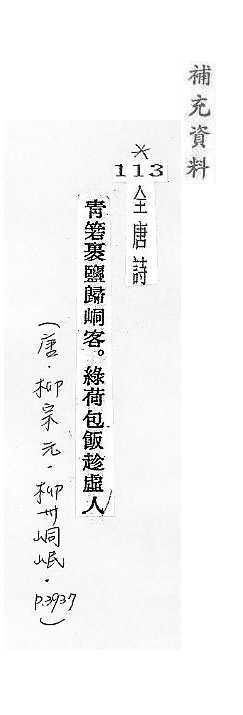 補充資料
*
113
全唐詩
青箬裹鹽歸峒客。綠荷包飯趁虛人
(唐.柳宗元.柳州峒岷.
p.3937)